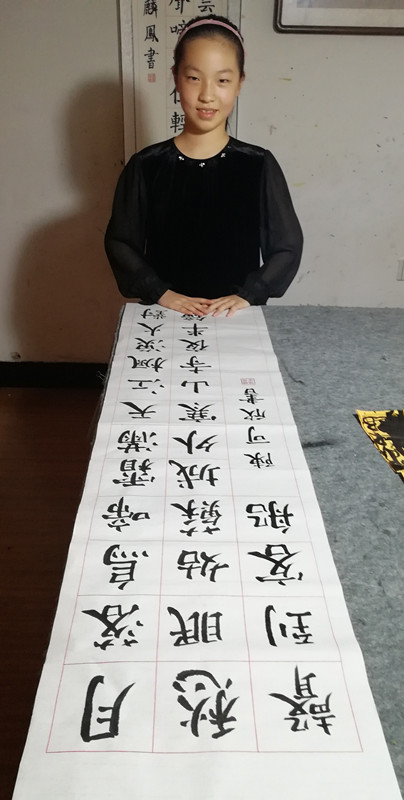 月落烏啼霜滿天江楓漁火對
愁眠姑蘇城外寒山寺夜半鐘
聲到客船
陳可欣書
麟鳳書